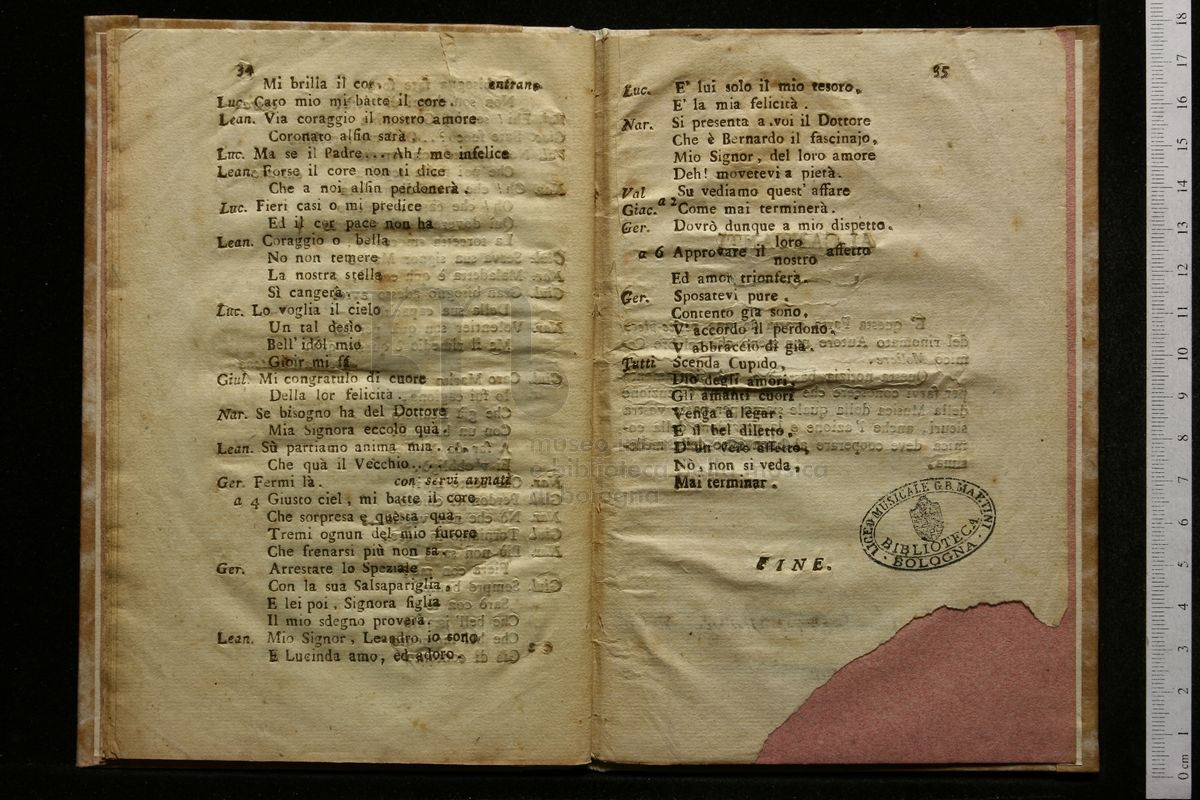 34
Mi brilla il cor. entrano
Luc. Caro mio mi batte il core.
Lean. Via coraggio il nostro amore
Coronato alfin sarà.
Luc. Ma se il Padre... Ah! me infelice
Lean. Forse il core non ti dice
Che a noi alfin perdonerà.
Luc. Fieri casi o mi predice
Ed il cor pace non ha
Lean. Coraggio o bella
No non temere
La nostra stella
Sì cangerà.
Luc. Lo voglia il cielo
Un tal desìo
Bell' idol mio
Gioir mi fà.
Giul. Mi congratulo di cuore
Della lor felicità.
Nar. Se bisogno ha del Dottore
Mia Signora eccolo quà.
Lean. Sù partiamo anima mia.
Che quà il Vecchio...
Ger. Fermi là. con servi armati
a 4 Giusto ciel, mi batte il core
Che sorpresa e questa qua
Tremi ognun del mio furore
Che frenarsi più non sa.
Ger. Arrestate lo Speziale
Con la sua Salsapariglia.
E lei poi, Signora figlia
Il mio sdegno proverà.
Lean. Mio Signor, Leandro io sono
E Lucinda amo, ed adoro.
35
Luc. E' lui solo il mio tesoro.
E' la mia felicità.
Nar. Si presenta a voi il Dottore
Che è Bernardo il fascinajo.
Mio Signor, del loro amore
Deh! movetevi a pietà.
Val Su vediamo quest' affare
Giac. a 2 Come mai terminerà.
Ger. Dovrò dunque a mio dispetto.
a 6 Approvare il loro nostro affetto
Ed amor trionferà.
Ger. Sposatevi pure.
Contento già sono.
V' accordo il perdono.
V' abbraccio di già.
Tutti Scenda Cupido,
Dio degli amori.
Gli amanti cuori
Venga a legar.
E il bel diletto,
D' un vero affetto,
Nò, non si veda,
Mai terminar.
FINE.
LICEO MUSICALE G.B. MARTINI
BIBLIOTECA
BOLOGNA
museo
e biblioteca della musica
bologna
0 cm 1 2 3 4 5 6 7 8 9 10 11 12 13 14 15 16 17 18